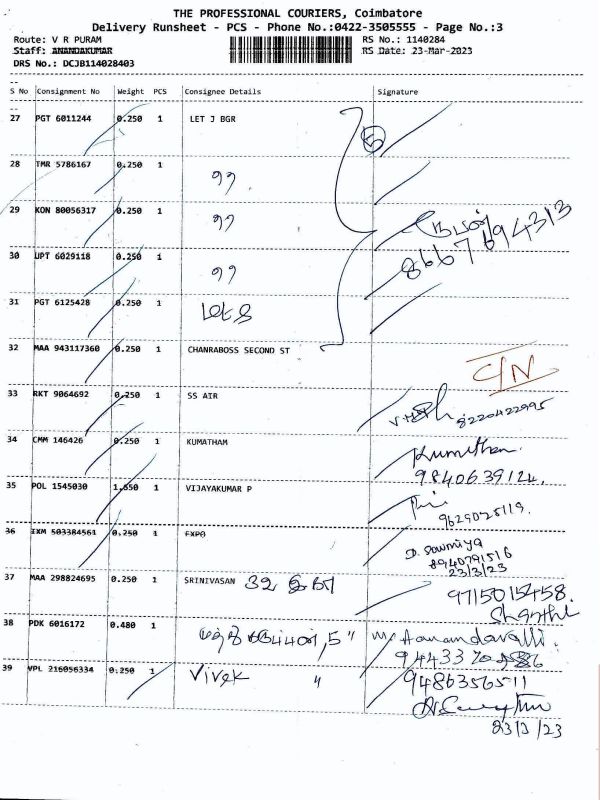 THE PROFESSIONAL COURIERS, Coimbatore
Delivery Runsheet - PCS - Phone No.:0422-3505555 - Page No.:3
Route: V R PURAM
RS No.: 1140284
Staff: ANANDAKUMAR
RS Date: 23-Mar-2023
DRS No.: DCJB114028403
S No Consignment No Weight PCS Consignee Details Signature
27 PGT 6011244 0.250 1 LET J BGR
5
28 TMR 5786167 0.250 1 99
29 KON 80056317 0.250 1 99
8667694313
30 UPT 6029118 0.250 1 99
31 PGT 6125428 0.250 1
32 MAA 943117360 0.250 1 CHANRABOSS SECOND ST
C/N
33 RKT 9064692 0.250 1 SS AIR
8220422995
34 CMM 146426 0.250 1 KUMATHAM
Kumuthan.
9840639124.
35 POL 1545030 1.550 1 VIJAYAKUMAR P
9629025119.
36 IXM 503384561 0.250 1 EXPO
D. Sowmiya
8940791516
23/3/23
37 MAA 298824695 0.250 1 SRINIVASAN 32
9715015458.
Shanthi
38 PDK 6016172 0.480 1
39 VPL 216056334 0.250 1 Vivek "
9486356511
23/3/23